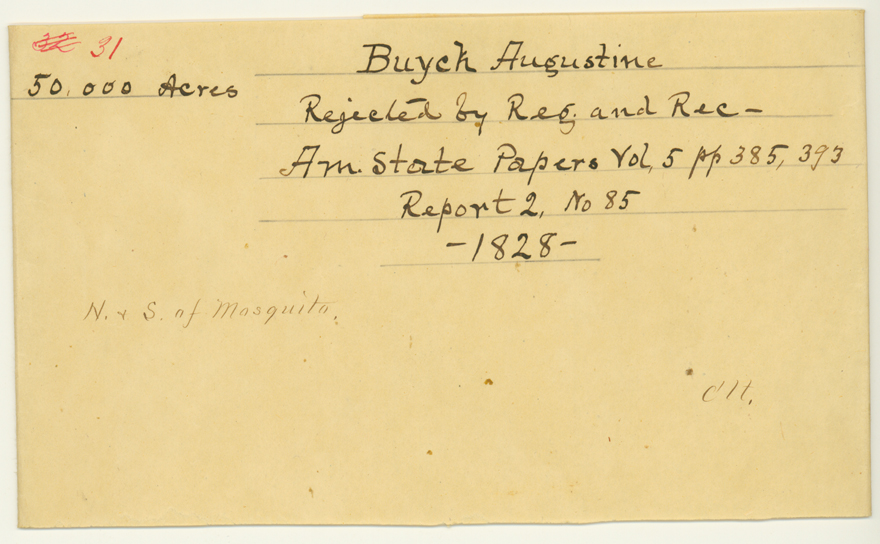 31
50,000 Acres
Buyck Augustine
Rejected by Reg. and Rec-
Am. State Papers Vol, 5 pp 385, 393
Report 2, No 85
-1828-
N. & S. of Mosquito.